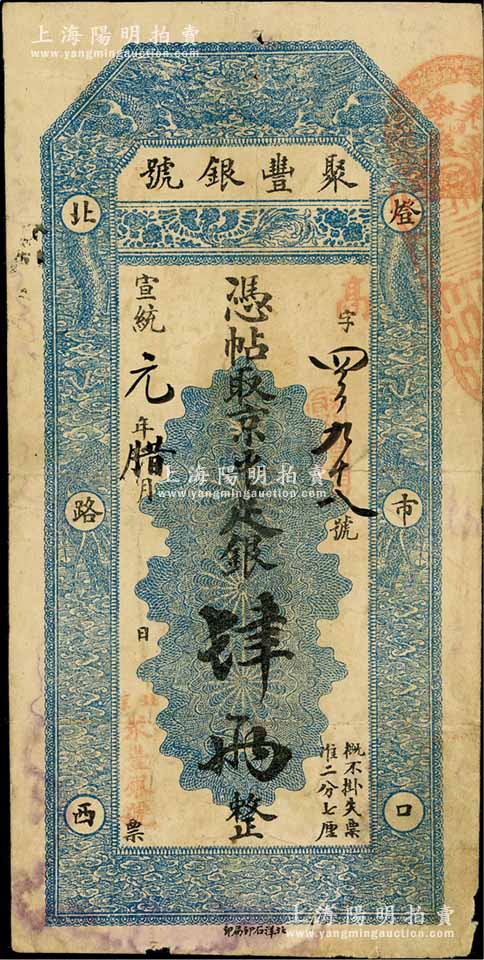 上海陽明拍賣
www.yangmingauction.com
聚豐銀號
燈市口
北路西
高字四九十八號
憑帖取京平足銀肆兩整
概不掛失票
准二分七厘
宣統元年腊月 日 票
聚豐銀號
上海陽明拍賣
www.yangmingauction.com
北洋石印局印
上海陽明拍賣
www.yangmingauction.com